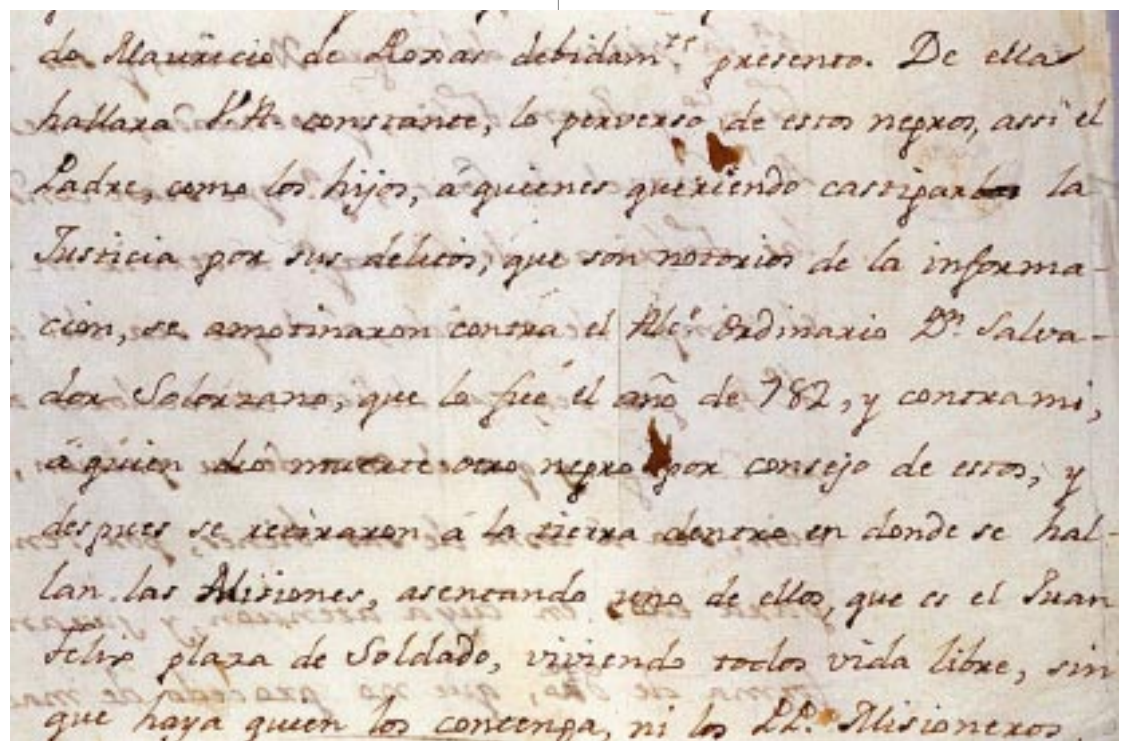 do Mauricio de Roxas debidam.te presento. De ellas
hallara V.A. constante, lo perverso de estos negros, assi el
Padre, como los hijos, á quienes queriendo castigar la
Justicia por sus delitos, que son notorios de la informa-
cion, se amotinaron contra el Alc.e Ordinario D.n Salva-
dor Solorzano, que lo fué el año de 782, y contra mi,
á quien dió muerte otro negro por consejo de estos, y
despues se retiraron á la tierra dentro en donde se hal-
lan las Misiones, asentando uno de ellos, que es el Juan
Felix plaza de Soldado, viviendo todos vida libre, sin
que haya quien los contenga, ni los PP.s Misioneros